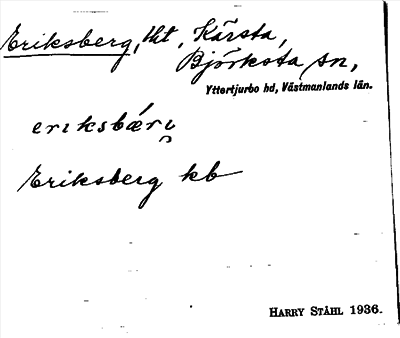 Eriksberg, lht, Kärsta,
Björksta sn,
Yttertjurbo hd, Västmanlands län.
eriksbærɩ
Eriksberg kb
HARRY STÅHL 1936.